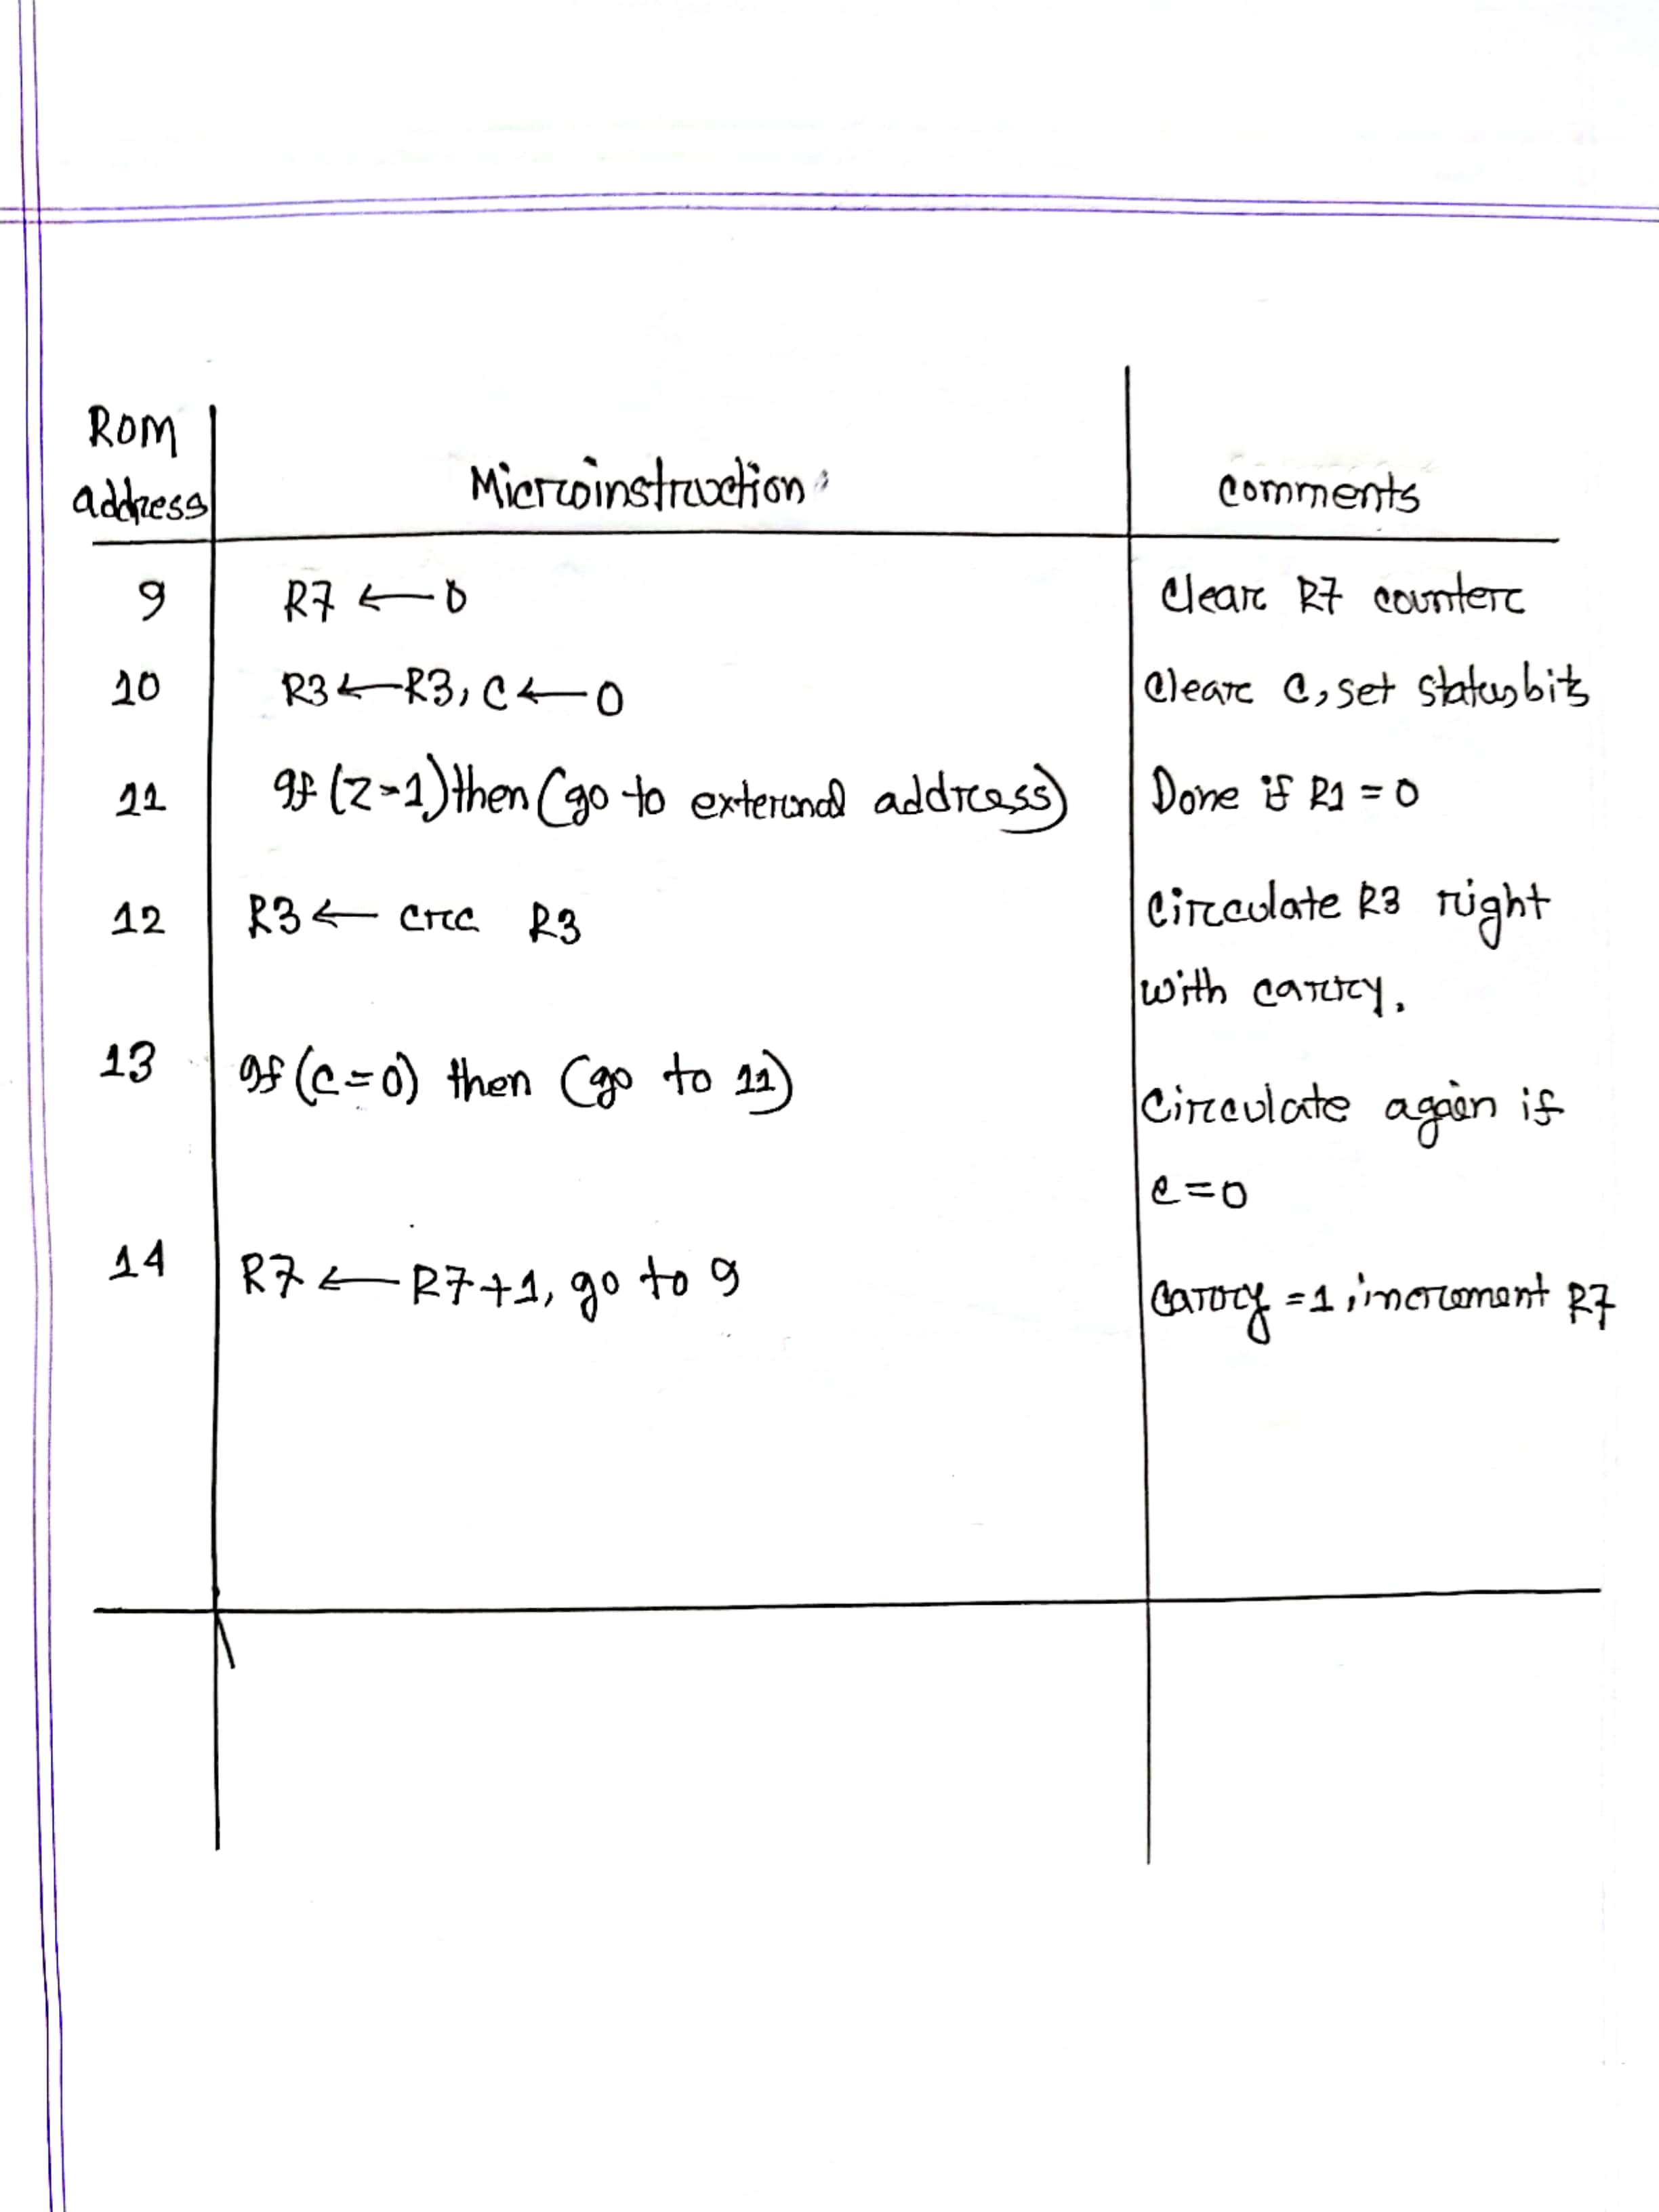 ROM
address
Microinstruction
comments
9 R7 ← 0 Clear R7 counter
10 R3 ← R3, C ← 0 Clear C, set status bits
11 If (Z=1) then (go to external address) Done if R1 = 0
12 R3 ← crc R3 Circulate R3 right
with carry.
13 If (C=0) then (go to 11)
Circulate again if
C=0
14 R7 ← R7+1, go to 9 Carry =1, increment R7